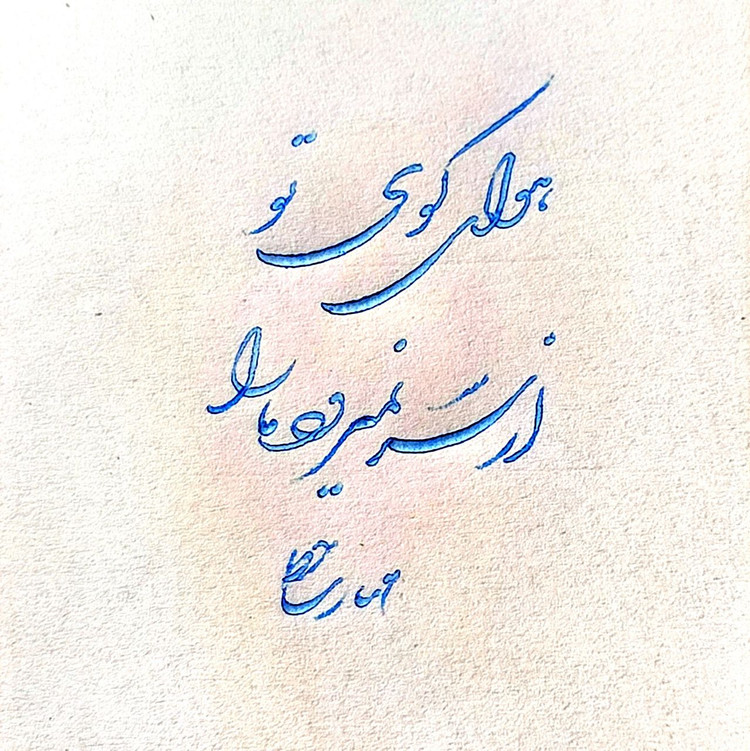 هوای کوی تو
از سر نمیرود ما را